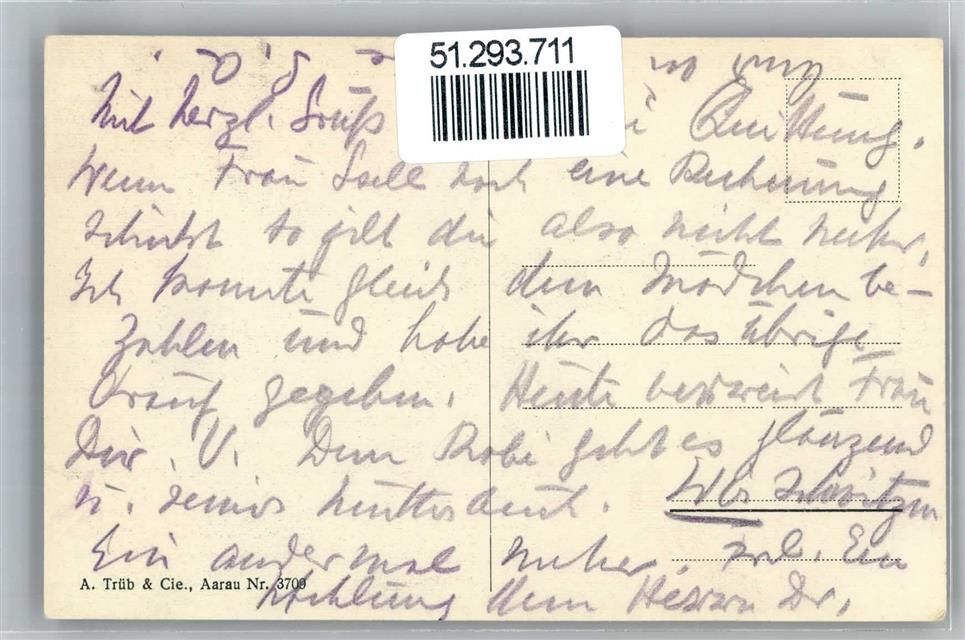 51.293.711
Mit herzl. Gruss Quittung.
Wenn Frau noch eine Rechnung
schickt so gilt die also nicht mehr.
Ich konnte gleich dem Mädchen be-
zahlen und habe ihr das übrige
drauf gegeben. Heute verreist Frau
Dir. V. Dem Robi geht es glänzend
u. seiner Mutter auch. Wir schwitzen
Ein andermal mehr.
dem Herrn Dr.
A. Trüb & Cie., Aarau Nr. 3709